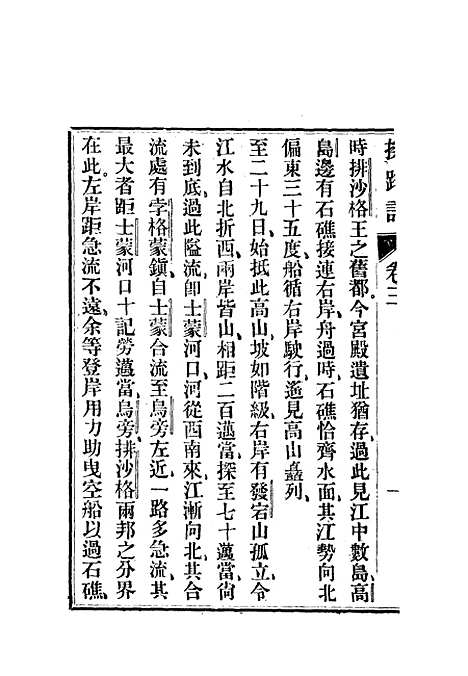 探路記 卷二 一
時排沙格王之舊都今宮殿遺址猶存過此見江中數島高
島邊有石礁接連右岸舟過時石礁恰齊水面其江勢向北
偏東三十五度船循右岸駛行遙見高山矗列
至二十九日始抵此高山坡如階級右岸有發宕山孤立令
江水自北折西兩岸皆山相距二百邁當探至七十邁當尙
未到底過此隘流卽士蒙河口河從西南來江漸向北其合
流處有孛格蒙鎭自士蒙合流至烏旁左近一路多急流其
最大者距士蒙河口十記勞邁當烏旁排沙格兩邦之分界
在此左岸距急流不遠余等登岸用力助曳空船以過石礁